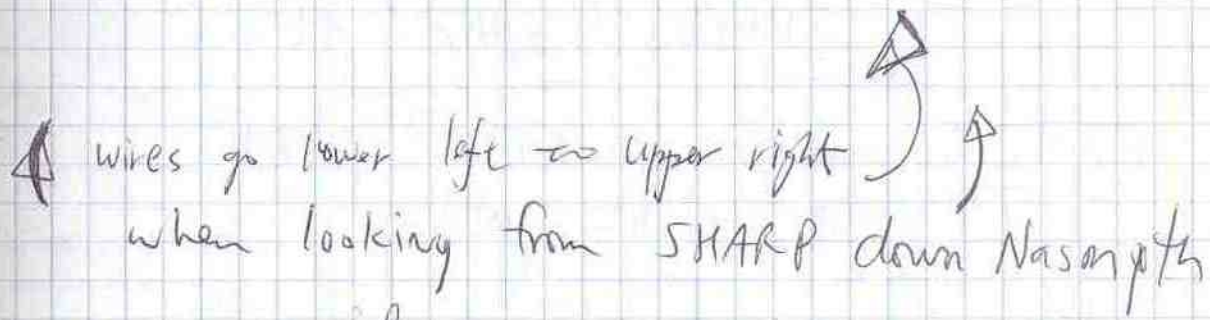 wires go lower left to upper right
when looking from SHARP down Nasmyth